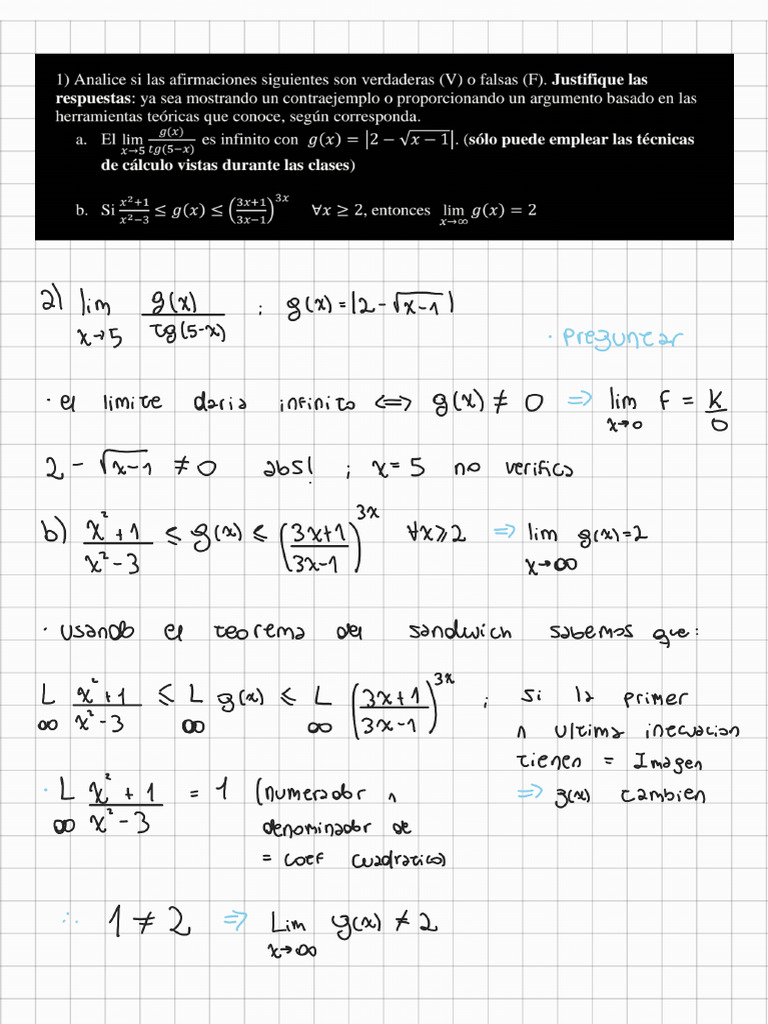 1) Analice si las afirmaciones siguientes son verdaderas (V) o falsas (F). Justifique las
respuestas: ya sea mostrando un contraejemplo o proporcionando un argumento basado en las
herramientas teóricas que conoce, según corresponda.
a. El lim x→5 g(x)/tg(5−x) es infinito con g(x) = |2 − √(x − 1)|. (sólo puede emplear las técnicas
de cálculo vistas durante las clases)
b. Si (x²+1)/(x²−3) ≤ g(x) ≤ ((3x+1)/(3x−1))^(3x) ∀x ≥ 2, entonces lim x→∞ g(x) = 2
a) lim x→5 g(x)/tg(5-x) ; g(x) = |2 - √(x-1)|
· Preguntar
· el limite daria infinito ⟺ g(x) ≠ 0 ⇒ lim x→0 F = K/0
2 - √(x-1) ≠ 0 abs! ; x = 5 no verifica
b) (x²+1)/(x²-3) ≤ g(x) ≤ ((3x+1)/(3x-1))^(3x) ∀x≥2 ⇒ lim x→∞ g(x)=2
· usando el teorema del sandwich sabemos que:
L ∞ (x²+1)/(x²-3) ≤ L ∞ g(x) ≤ L ∞ ((3x+1)/(3x-1))^(3x) ; si la primer
∧ ultima inecuacion
tienen = Imagen
⇒ g(x) tambien
· L ∞ (x²+1)/(x²-3) = 1 (numerador ∧
denominador de
= coef cuadratico)
∴ 1 ≠ 2 ⇒ Lim x→∞ g(x) ≠ 2